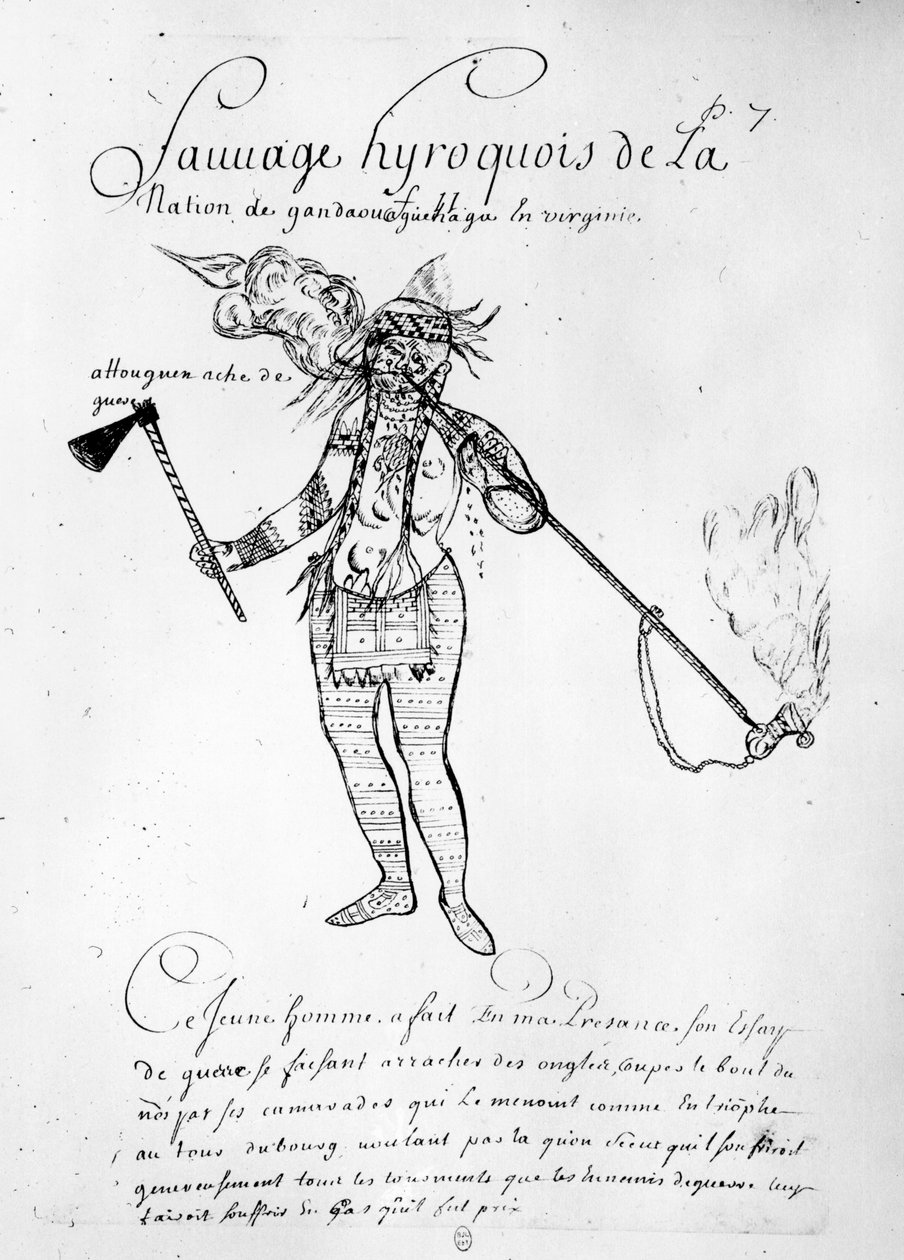 p. 7
Sauuage hyroquois de La
Nation de gandaouaguehaga En virginie.
attouguen ache de
guere
Ce Jeune homme. a fait En ma Presance. son Essay
de guerre se faisant arracher des ongles, coupes le bout du
nés par ses camarades qui Le menoint comme En triõphe
au tour du bourg voulant par la quon sceut quil souffriroit
genereusement tour les tourments que les Ennemis de guerre luy
fairoit souffrir En Cas quil fut pris